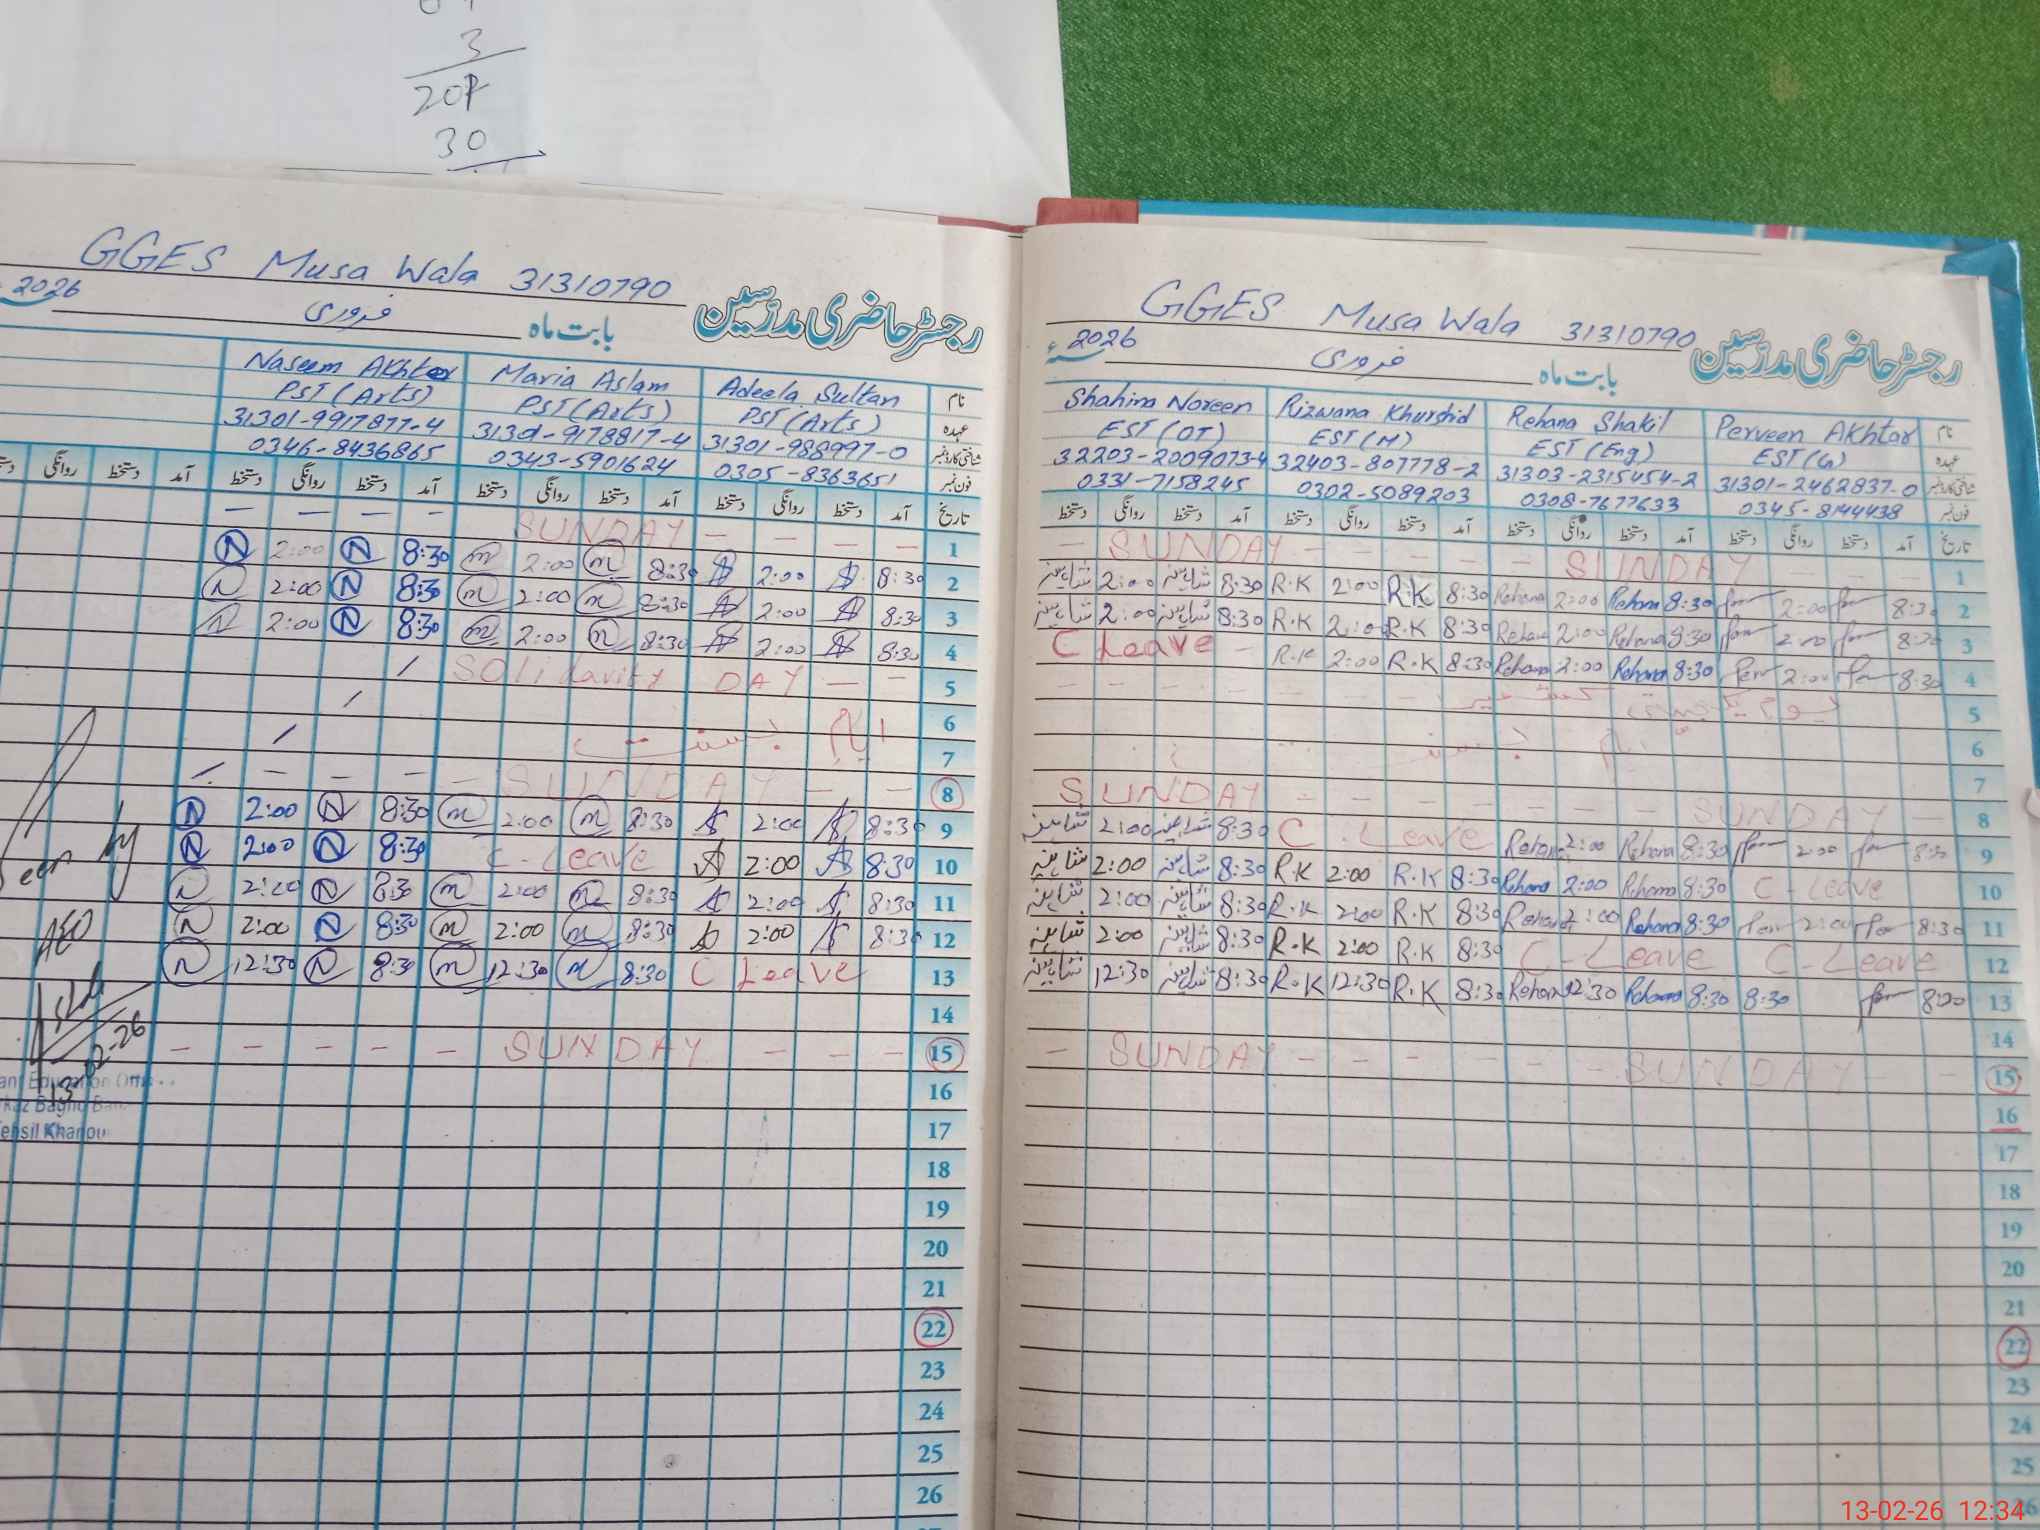 3
201
30
GGES Musa Wala 31310790
رجسٹر حاضری مدرّسین
بابت ماہ فروری 2026
نام Adeela Sultan Maria Aslam Naseem Akhtar
عہدہ PST (Arts) PST (Arts) PST (Arts)
شناختی کارڈ نمبر 31301-988997-0 31301-9178817-4 31301-9917877-4
فون نمبر 0305-8363651 0343-5901624 0346-8436865
تاریخ آمد دستخط روانگی دستخط آمد دستخط روانگی دستخط آمد دستخط روانگی دستخط آمد دستخط روانگی
1 — — — — SUNDAY — — — —
2 8:30 2:00 8:30 m 2:00 m 8:30 N 2:00 N
3 8:30 2:00 8:30 m 2:00 m 8:30 N 2:00 N
4 8:30 2:00 8:30 m 2:00 m 8:30 N 2:00 N
5 Solidarity DAY — —
6 ایام بسنت
7
8 — — SUNDAY — — — —
9 8:30 2:00 8:30 m 2:00 m 8:30 N 2:00 N
10 8:30 2:00 C-Leave 8:30 N 2:00 N
11 8:30 2:00 8:30 m 2:00 m 8:30 N 2:00 N
12 8:30 2:00 8:30 m 2:00 m 8:30 N 2:00 N
13 C Leave 8:30 m 12:30 m 8:30 N 12:30 N
14
15 — — — SUNDAY — — — — —
16
17
18
19
20
21
22
23
24
25
26
Seen by
AEO
13-02-26
Education
Tehsil Khanpur
GGES Musa Wala 31310790
رجسٹر حاضری مدرّسین
بابت ماہ فروری سنہ 2026ء
نام Perveen Akhtar Rehana Shakil Rizwana Khurshid Shahina Noreen
عہدہ EST (G) EST (Eng) EST (M) EST (OT)
شناختی کارڈ نمبر 31301-2462837-0 31303-2315454-2 32403-807778-2 32203-2009073-4
فون نمبر 0345-8144438 0308-7677633 0302-5089203 0331-7158245
تاریخ آمد دستخط روانگی دستخط آمد دستخط روانگی دستخط آمد دستخط روانگی دستخط آمد دستخط روانگی دستخط
1 — — SUNDAY — — — — SUNDAY —
2 8:30 2:00 8:30 Rehana 2:00 Rehana 8:30 R.K 2:00 R.K 8:30 شاہینہ 2:00 شاہینہ
3 8:30 2:00 8:30 Rehana 2:00 Rehana 8:30 R.K 2:00 R.K 8:30 شاہینہ 2:00 شاہینہ
4 8:30 2:00 8:30 Rehana 2:00 Rehana 8:30 R.K 2:00 R.K C Leave —
5 یوم یکجہتی کشمیر
6 ایام بسنت
7
8 — SUNDAY — — — — — — SUNDAY
9 8:30 2:00 8:30 Rehana 2:00 Rehana C-Leave 8:30 شاہینہ 2:00 شاہینہ
10 C-Leave 8:30 Rehana 2:00 Rehana 8:30 R.K 2:00 R.K 8:30 شاہینہ 2:00 شاہینہ
11 8:30 2:00 8:30 Rehana 2:00 Rehana 8:30 R.K 2:00 R.K 8:30 شاہینہ 2:00 شاہینہ
12 C-Leave C-Leave 8:30 R.K 2:00 R.K 8:30 شاہینہ 2:00 شاہینہ
13 8:30 8:30 8:30 Rehana 12:30 Rehana 8:30 R.K 12:30 R.K 8:30 شاہینہ 12:30 شاہینہ
14
15 — — SUNDAY — — — — SUNDAY —
16
17
18
19
20
21
22
23
24
25
26
13-02-26 12:34